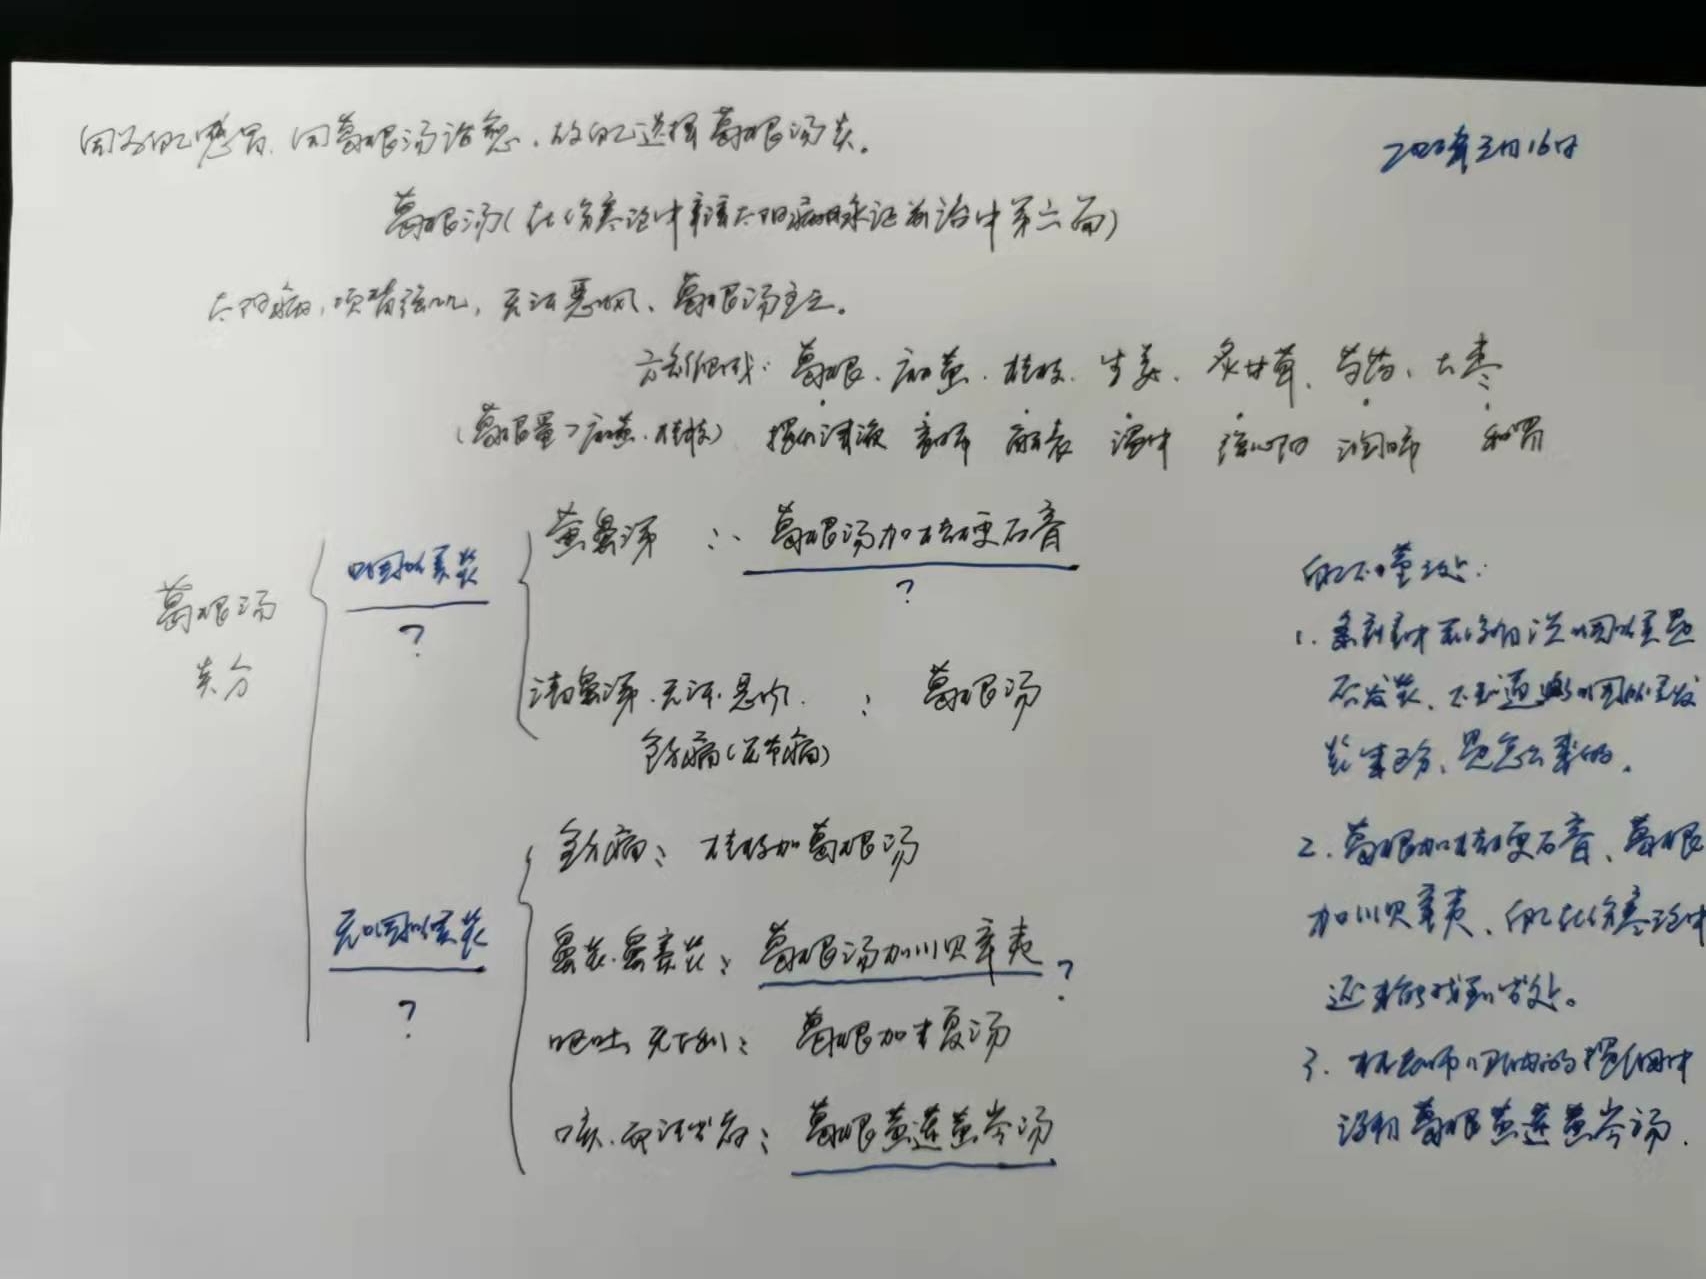 因自己感冒,用葛根汤治愈,故自己选择葛根汤类。
2020年3月16日
葛根汤(在伤寒论中辨太阳病脉证并治中第六篇)
太阳病,项背强几几,无汗恶风、葛根汤主之。
方剂组成: 葛根、麻黄、桂枝、生姜、炙甘草、芍药、大枣
(葛根量>麻黄、桂枝) 津液 解表 温中 强心阳 和胃
葛根汤
类方
咽喉发炎
?
黄鼻涕 : 葛根汤加桔梗石膏
?
清鼻涕.无汗.恶风. : 葛根汤
无咽喉发炎
?
: 桂枝加葛根汤
鼻炎.鼻塞: 葛根汤加川贝辛夷 ?
呕吐,无下利: 葛根加半夏汤
咳.而汗出者: 葛根黄连黄芩汤
自己不懂之处:
1. 条文中没有说咽喉是
否发炎、不知通过咽喉发
炎来分、是怎么来的。
2. 葛根加桔梗石膏、葛根
加川贝辛夷、自己在伤寒论中
还未能找到出处。
3. 老师中
没有葛根黄连黄芩汤.